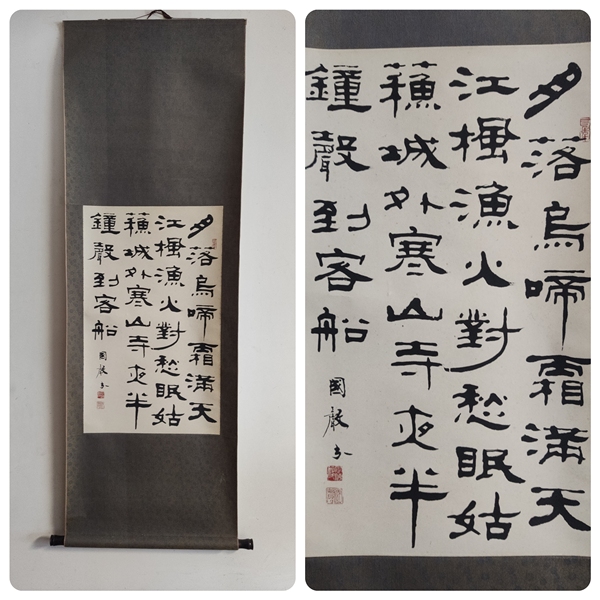 月落烏啼霜滿天
江楓漁火對愁眠姑
蘓城外寒山寺夜半
鐘聲到客船
國
月落烏啼霜滿天
江楓漁火對愁眠姑
蘓城外寒山寺夜半
鐘聲到客船
國